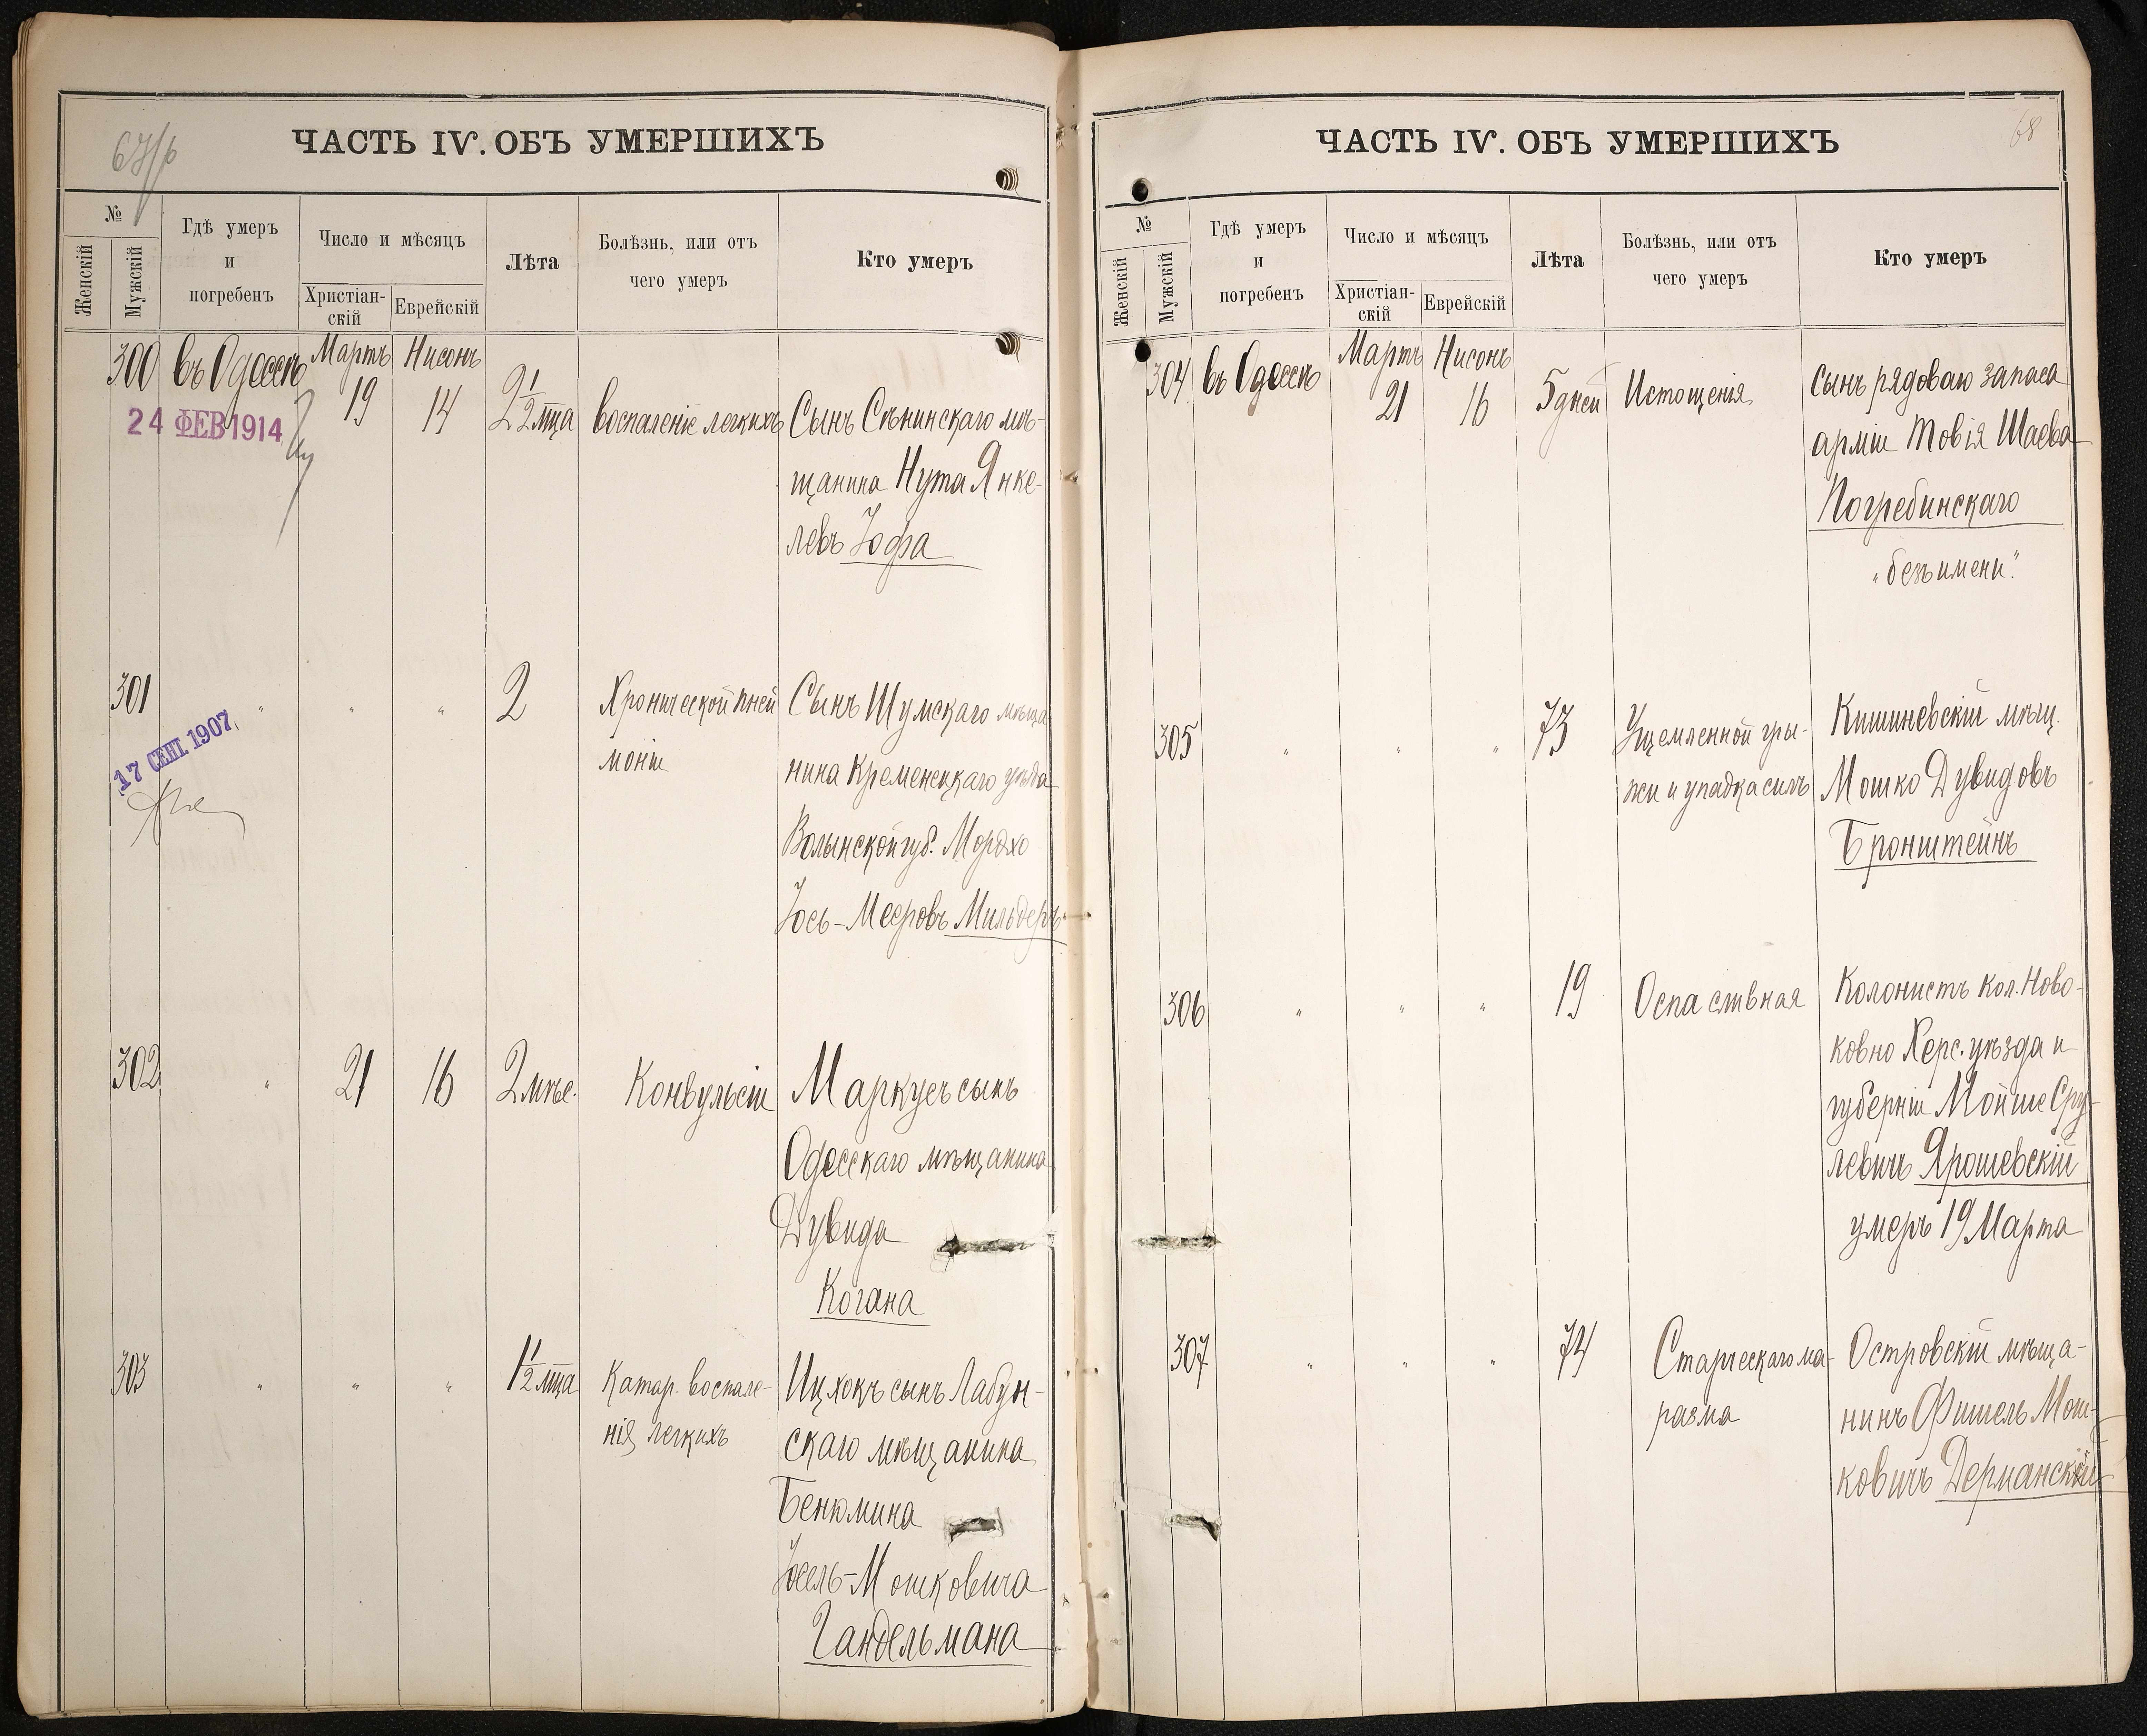 67/р
ЧАСТЬ IV. ОБЪ УМЕРШИХЪ
№
Женскій
Мужскій
Гдѣ умеръ
и
погребенъ
Число и мѣсяцъ
Христіан-
скій
Еврейскій
Лѣта
Болѣзнь, или отъ
чего умеръ
Кто умеръ
300 въ Одессѣ Мартъ Нисонъ
19 14 2 1/2 м̅ц̅а воспаленіе легкихъ Сынъ Сѣнинскаго мѣ-
24 ФЕВ 1914
щанина Нута Янке-
левъ Іофа
301 " " " 2 Хронической пней Сынъ Шумскаго мѣща
17 СЕН. 1907.
моніи нина Кременецкаго уѣзда
Волынской губ. Мордхо
Іось-Мееровъ Мильдеръ
302 " 21 16 2 мѣс. Конвульсіи Маркусъ сынъ
Одесскаго мѣщанина
Дувида
Когана
303 " " " 1 1/2 м̅ц̅а Катар. воспале- Ицхокъ сынъ Лабун-
нія легкихъ скаго мѣщанина
Бенюмина
Іосель-Мошковича
Гандельмана
68
ЧАСТЬ IV. ОБЪ УМЕРШИХЪ
№
Женскій
Мужскій
Гдѣ умеръ
и
погребенъ
Число и мѣсяцъ
Христіан-
скій
Еврейскій
Лѣта
Болѣзнь, или отъ
чего умеръ
Кто умеръ
304 въ Одессѣ Мартъ Нисонъ
21 16 5 дней Истощенія Сынъ рядоваго запаса
арміи Товія Шаева
Погребинскаго
„безъ имени".
305 " " " 73 Ущемленной гры- Кишиневскій мѣщ.
жи и упадка силъ Мошко Дувидовъ
Бронштейнъ
306 " " " 19 Оспа сливная Колонистъ кол. Ново-
ковно Херс. уѣзда и
губерніи Мойше Сру-
левичъ Ярошевскій
умеръ 19 Марта
307 " " " 74 Старческаго ма- Островскій мѣща-
разма нинъ Фишель Мош-
ковичъ Дерманскій